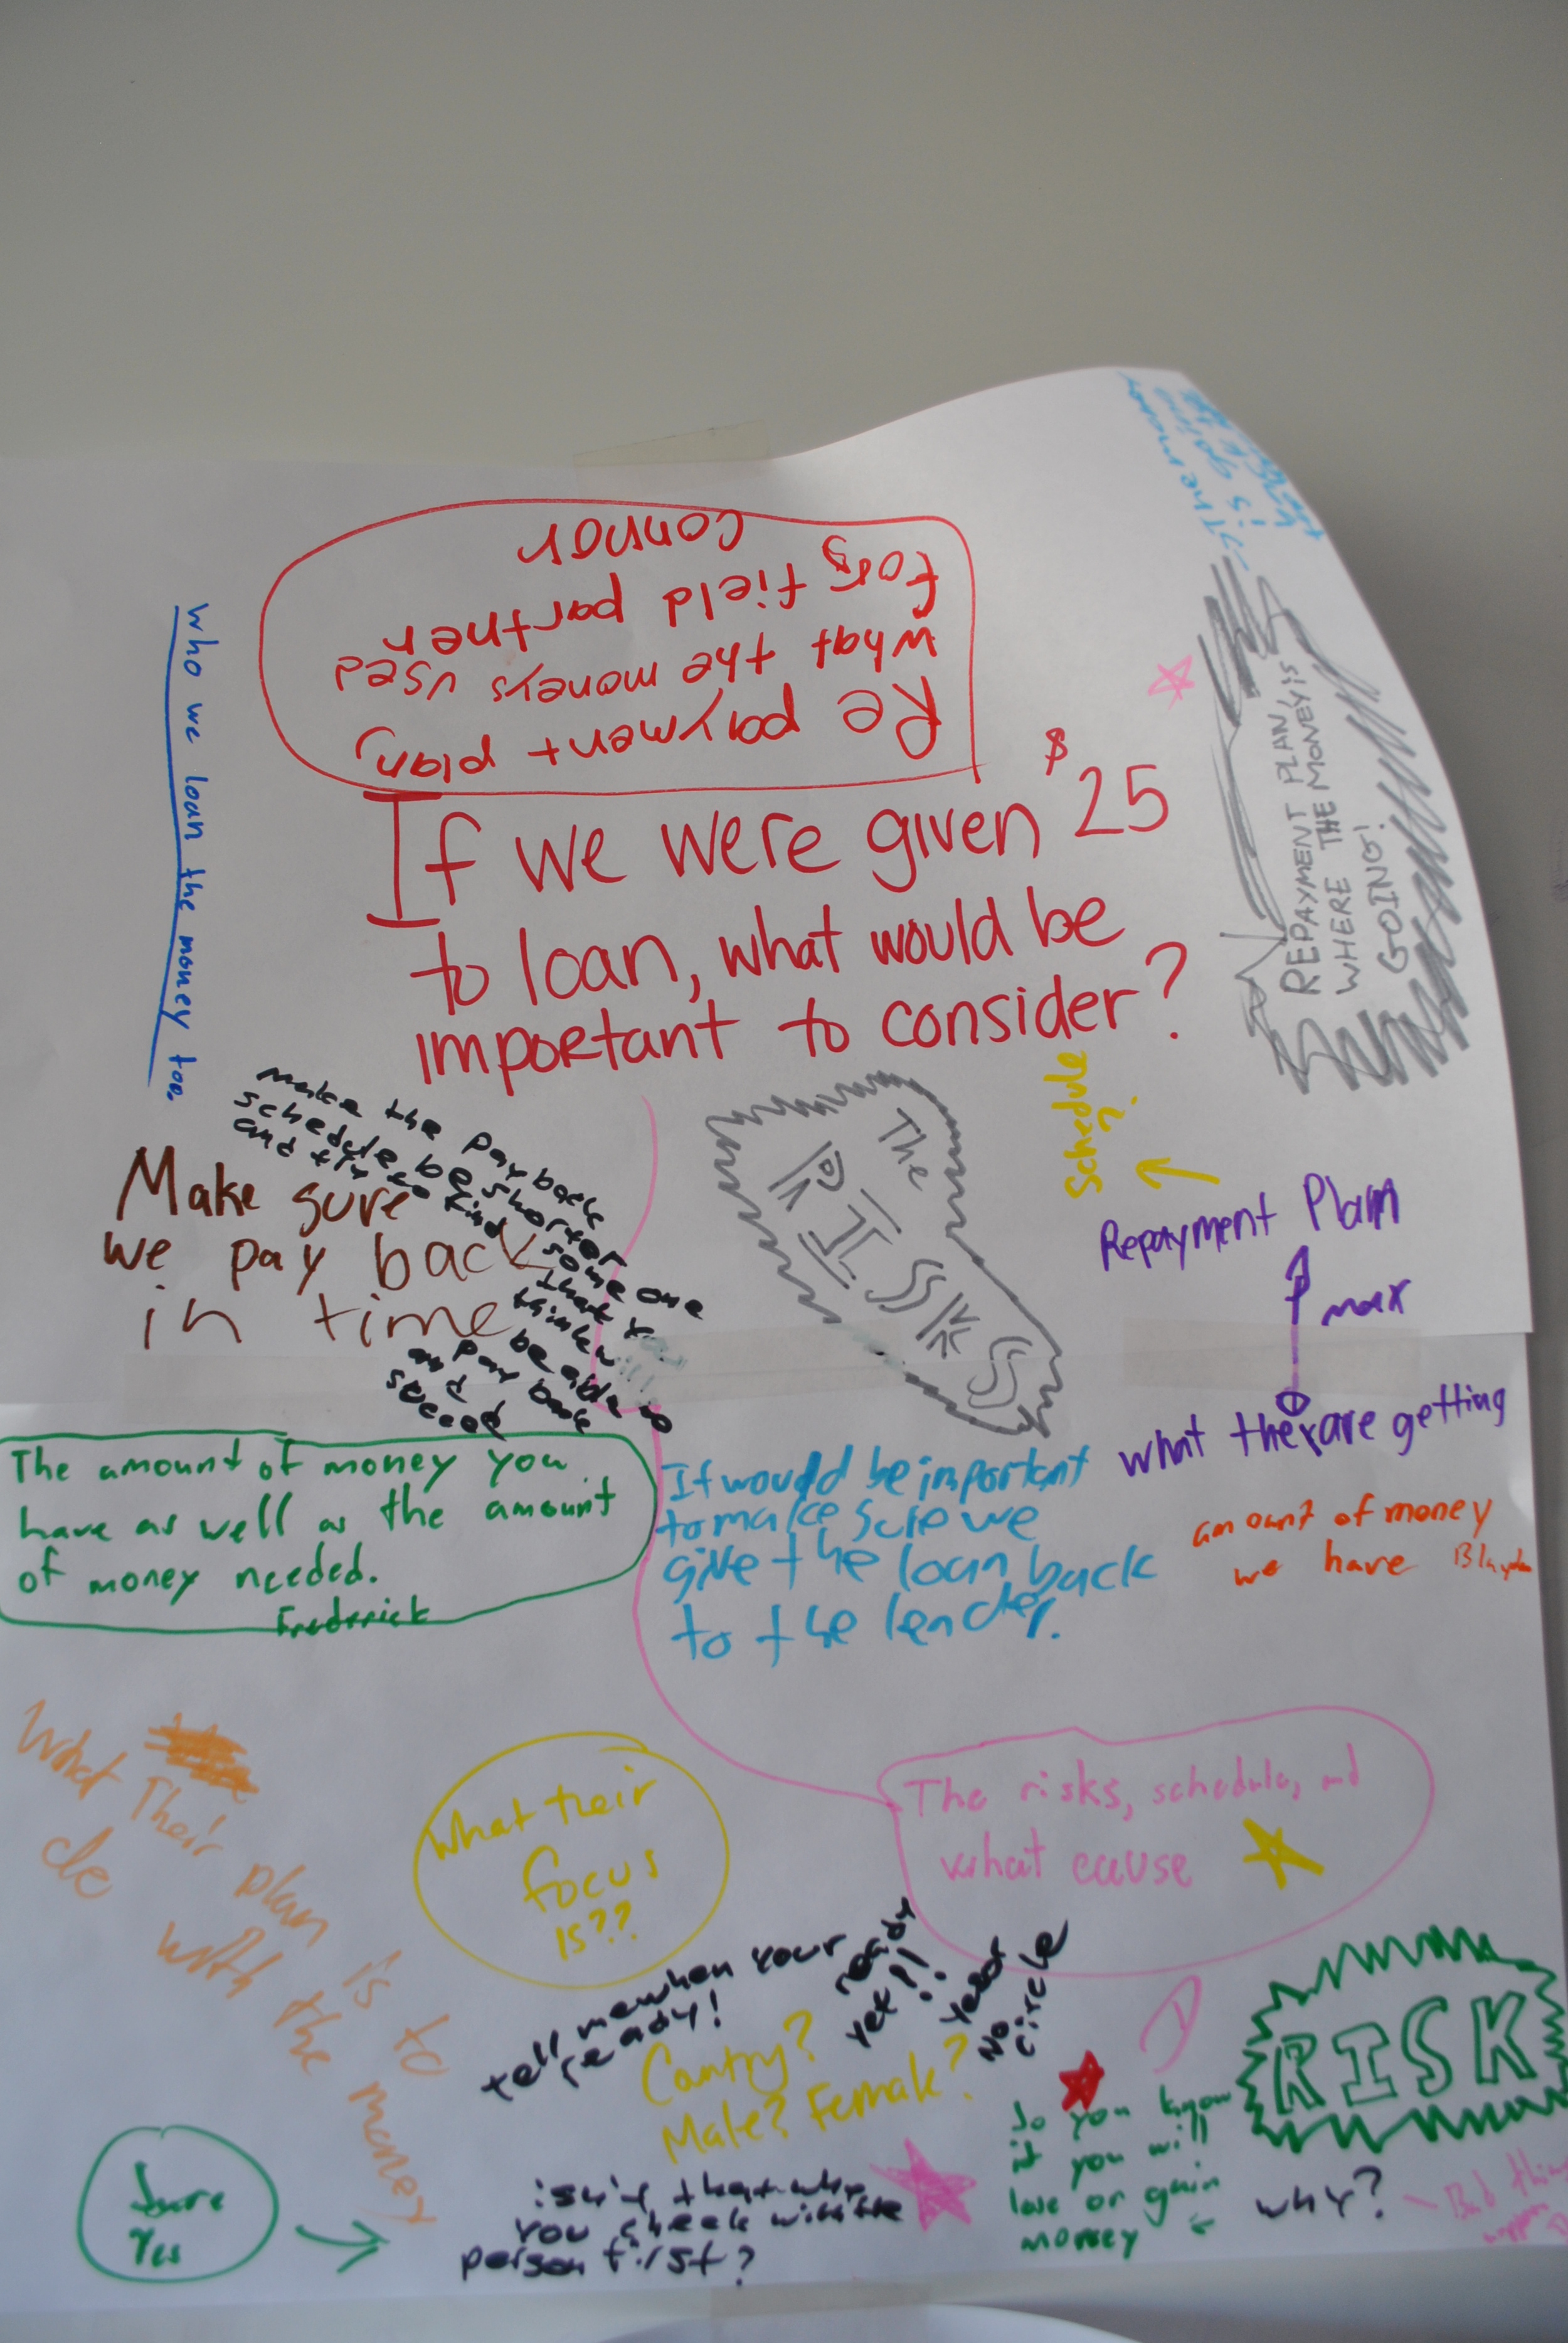 Re payment plan,
what the moneys used
for, field partner
connor
If we were given $25
to loan, what would be
important to consider?
who we loan the money too.
The money
is going
REPAYMENT PLAN,
WHERE THE MONEY IS
GOING!
make the pay back
schedule be shorter
and try to find some one
that you
think will
be able to
pay back
and
Make sure
we pay back
in time
The
RISKS
Schedule
?
Repayment Plan
max
what they are getting
The amount of money you
have as well as the amount
of money needed.
Frederick
It would be important
to make sure we
give the loan back
to the lender.
amount of money
we have
What Their plan is to
do with the money
What their
focus
is??
The risks, schedule, and
what cause
tell me when your
ready!
ready
yet?!
no
circle
Country?
Male? Female?
Sure
Yes
isn't that why
you check with the
person first?
So you know
if you will
lose or gain
money
RISK
why?
Bad